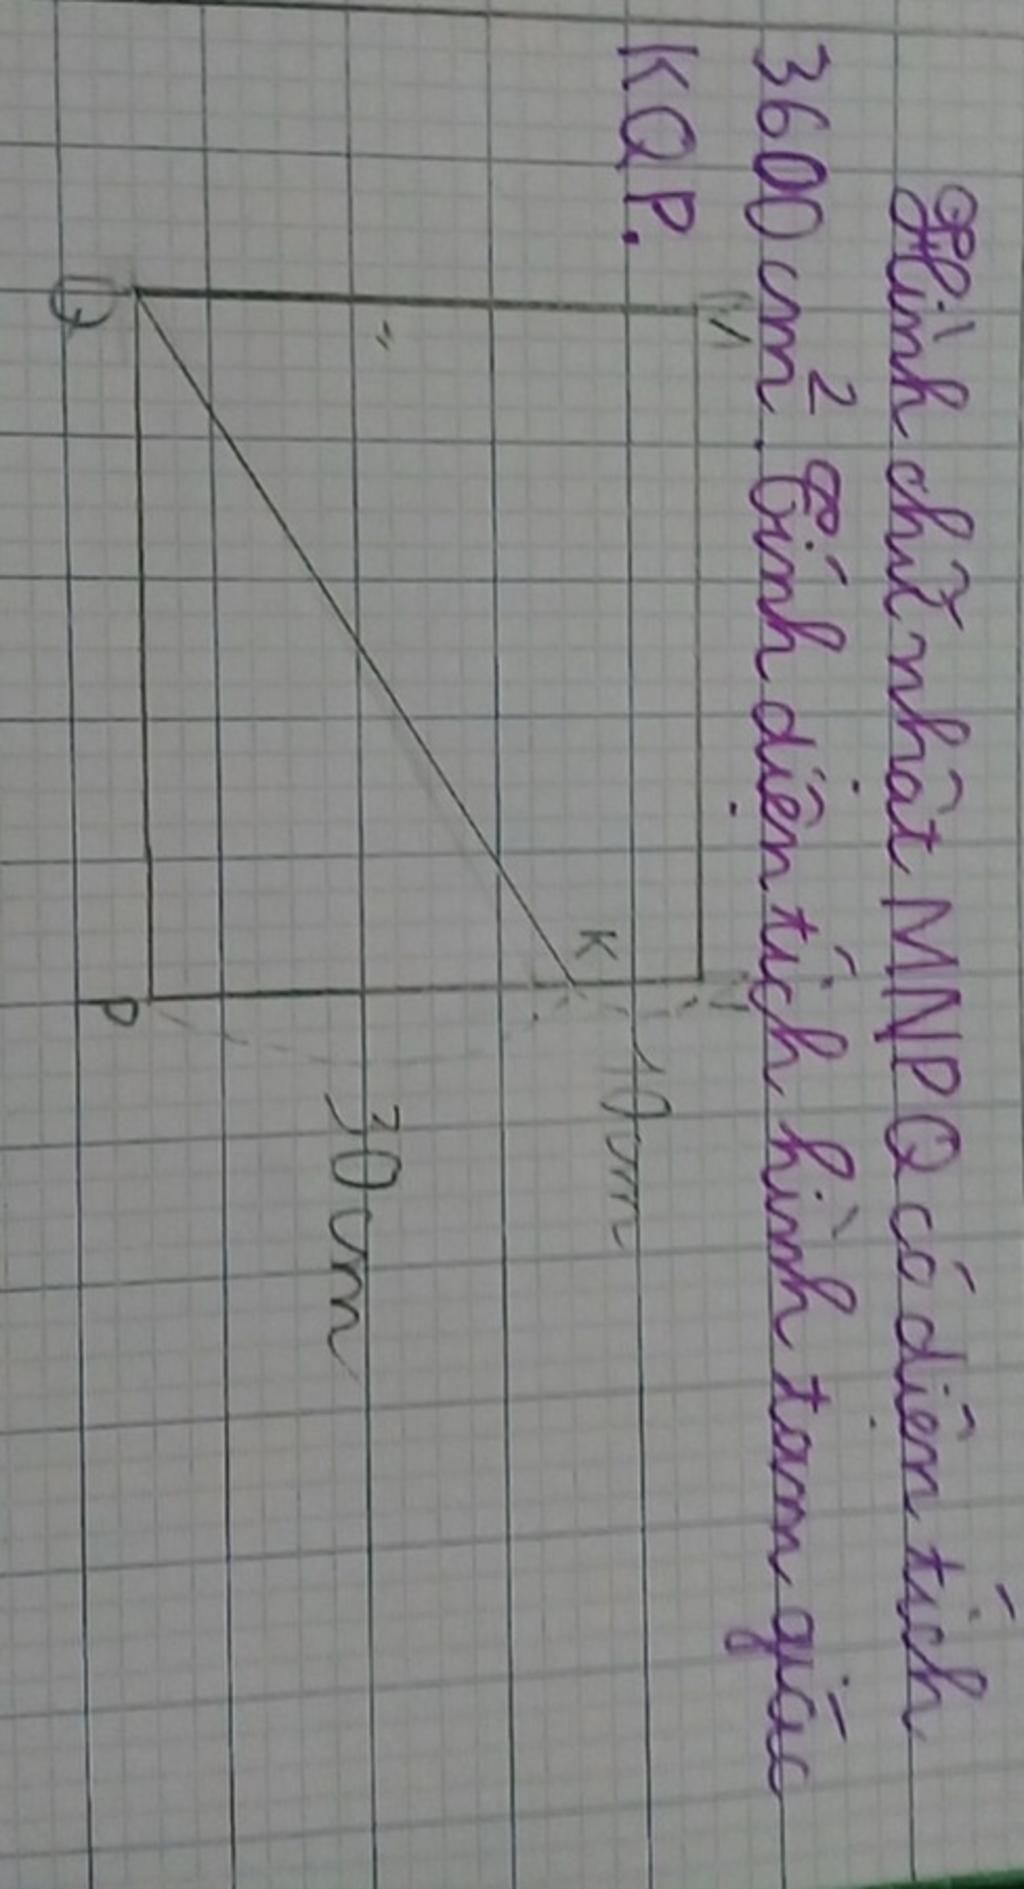 Hình chữ nhật MNPQ có diện tích
3600 cm². Tính diện tích hình tam giác
KQP.
10cm
K
30cm
Q
P